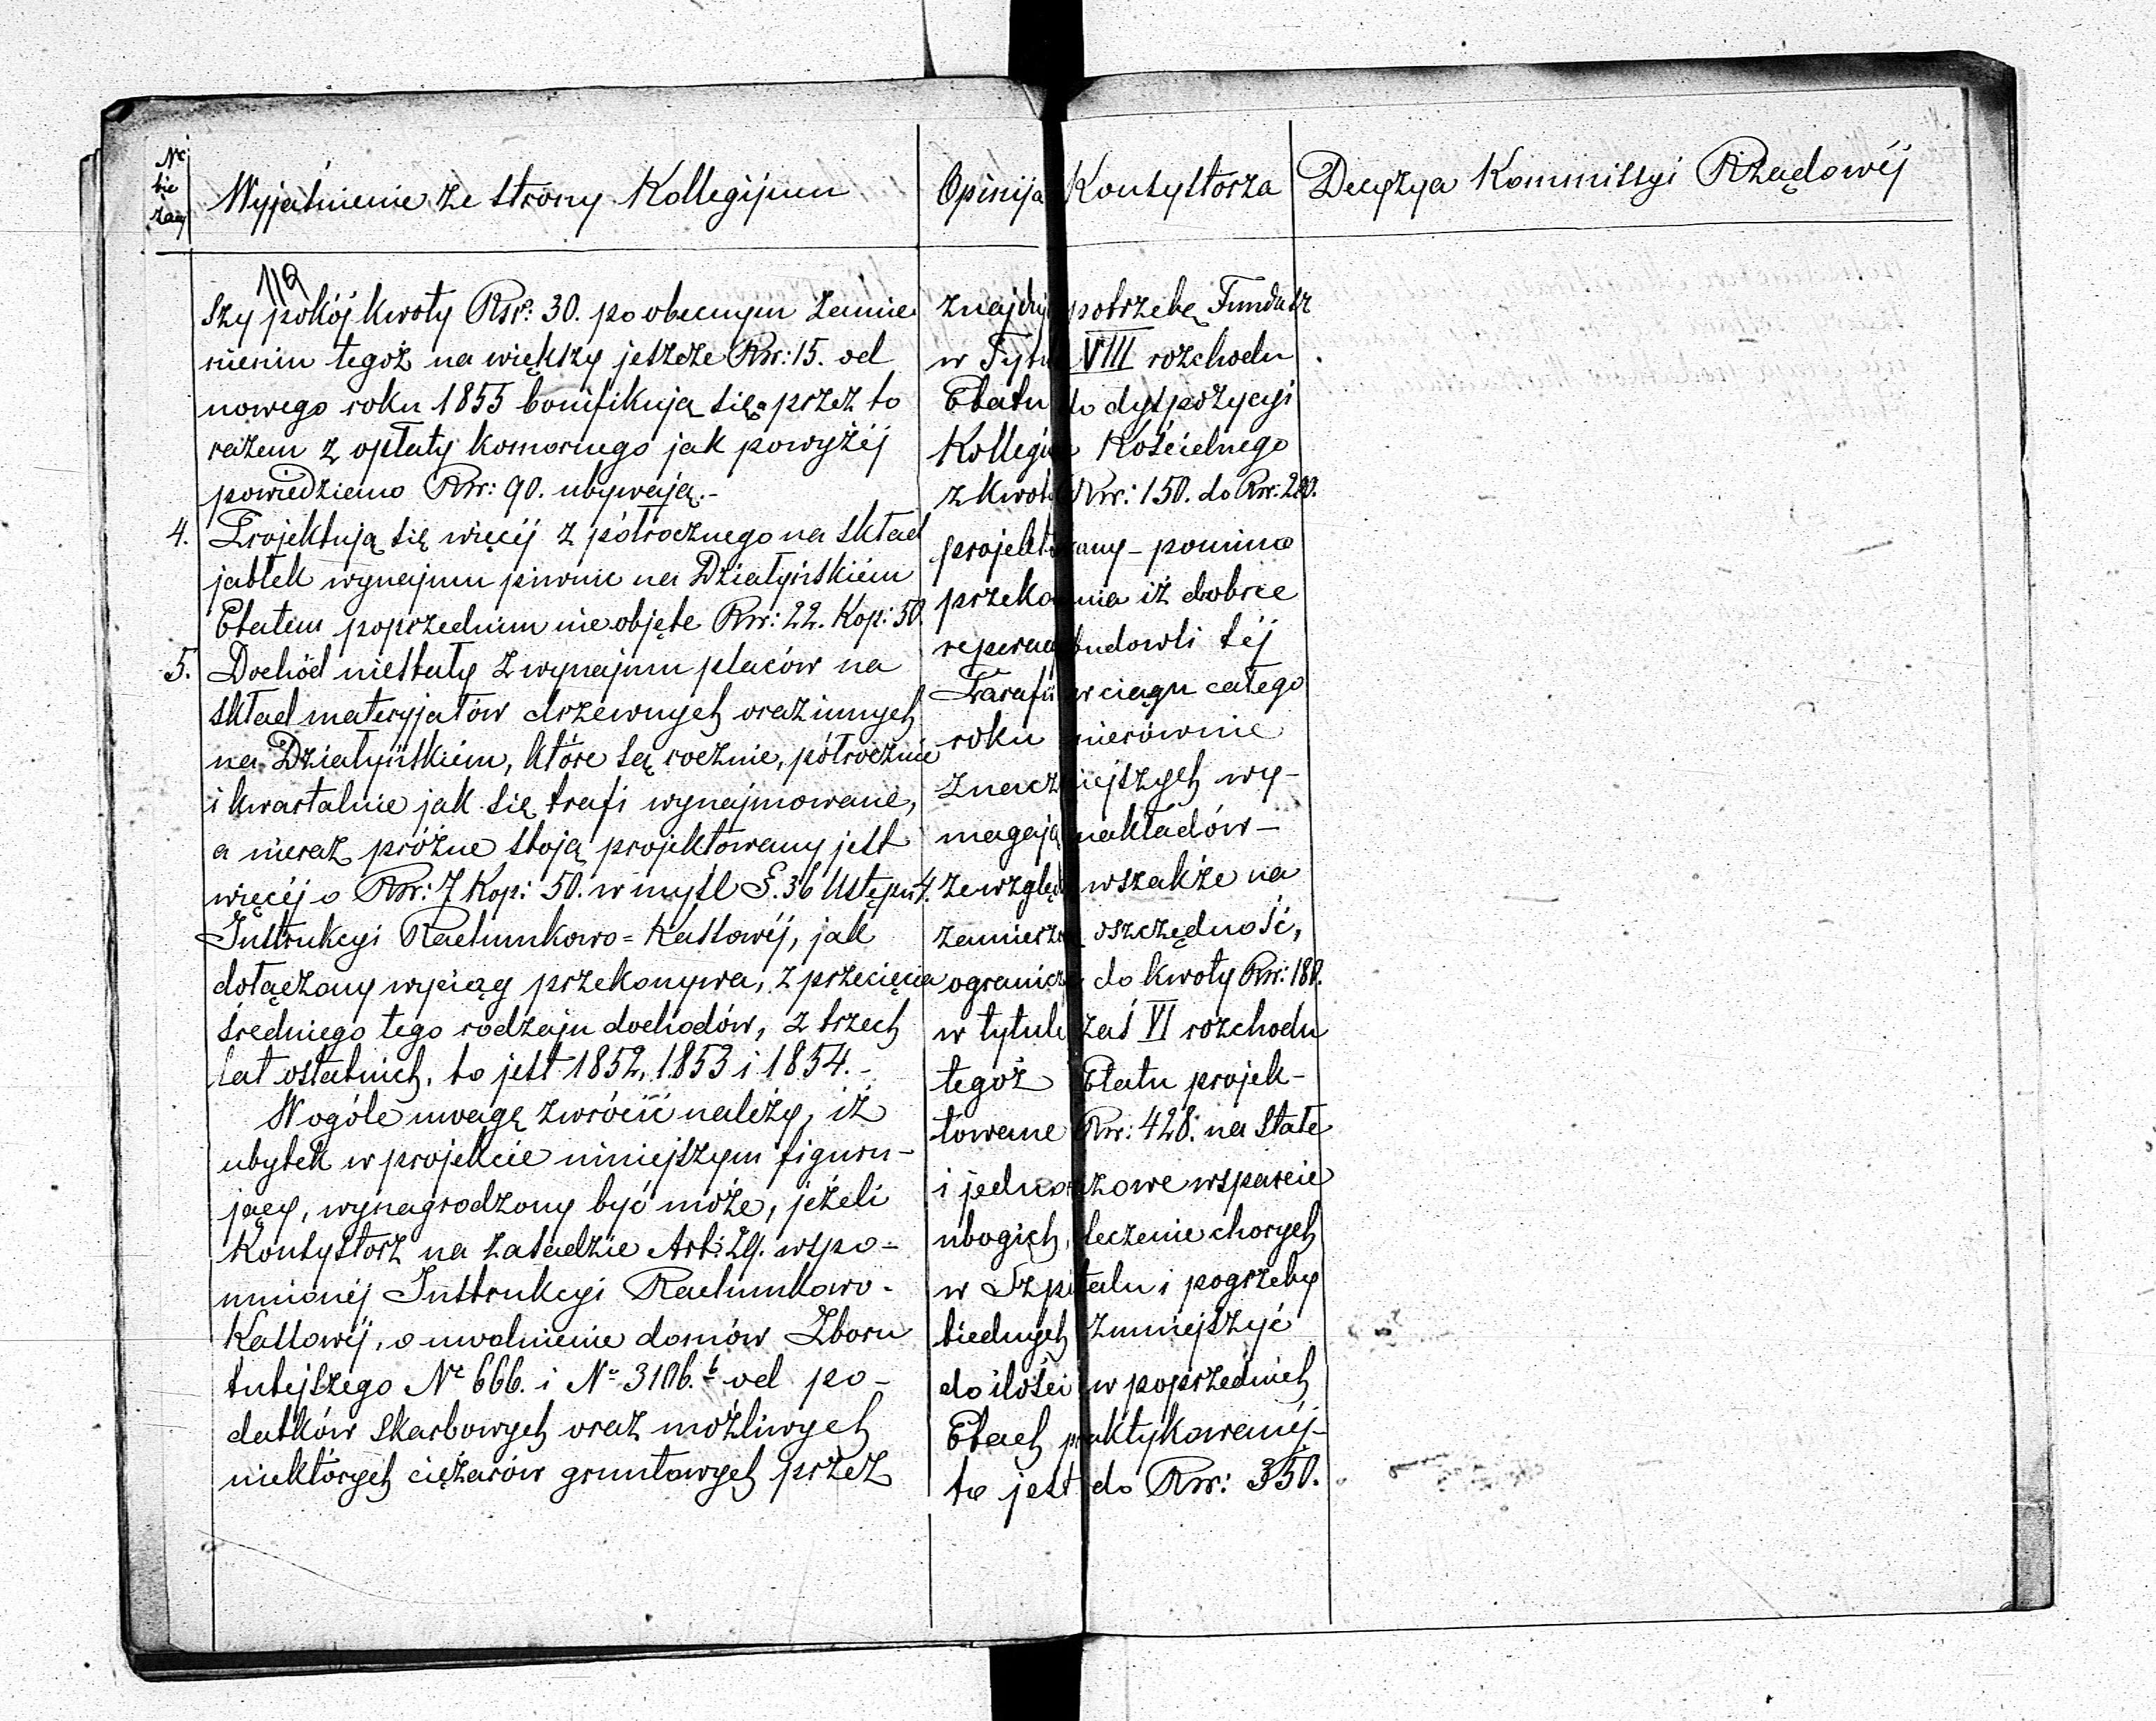 Nr bie żący
Wyjaśnienie ze strony Kollegijum
Opinija Konsystorza
Decyzya Kommissyi Rządowéj
119
szy pokój kwoty Rsr: 30. po obecnym zamie
nieniu tegoż na większy jeszcze Rsr: 15. od
nowego roku 1855 bonifikują się, przez to
razem z opłaty komornego jak powyżéj
powiedziano Rsr: 90. ubywają.-
4. Projektują się więcéj z półrocznego na skład
jabłek wynajmu piwnic na Działyńskiém
Etatem poprzednim nie objęte Rsr: 22. Kop: 50.
5. Dochód niestały z wynajmu placów na
skład materyjałów drzewnych oraz innych
na Działyńskiém, które są rocznie, półrocznie
i kwartalnie jak się trafi wynajmowane,
a nieraz próżne stoją projektowany jest
więcéj o Rsr: 7 Kop: 50. w myśl §. 36 Ustępu 4.
Instrukcyi Rachunkowo=Kassowéj, jak
dołączony wyciąg przekonywa, z przecięcia
średniego tego rodzaju dochodów, z trzech
lat ostatnich, to jest 1852, 1853 i 1854.-
W ogóle uwagę zwrócić należy, iż
ubytek w projekcie niniejszym figuru-
jący, wynagrodzony być może, jeżeli
Konsystorz na zasadzie Art: 29. wspo-
mnionéj Instrukcyi Rachunkowo-
Kassowéj, o uwolnienie domów Zboru
tutejszego Nr 666. i No 3106.b od po-
datków skarbowych oraz możliwych
niektórych ciężarów gruntowych przez
znajduje potrzebę Fundusz
w Tytule VIII rozchodu
Etatu do dyspozycyi
Kollegium Kościelnego
z kwoty Rsr: 150. do Rsr: 200.
projektowany - pomimo
przekonania iż dobrze
reperacye budowli téj
Parafii w ciągu całego
roku nierównie
znaczniejszych wy-
magają nakładów -
ze względu wszakże na
zamierzoną oszczędność,
ograniczyć do kwoty Rsr: 180.
w tytule zaś VI rozchodu
tegoż Etatu projek-
towane Rsr: 428. na stałe
i jednorazowe wsparcie
ubogich, leczenie chorych
w Szpitalu i pogrzeby
biednych zmniejszyć
do ilości w poprzednich
Etach praktykowanéj -
to jest do Rsr: 350.